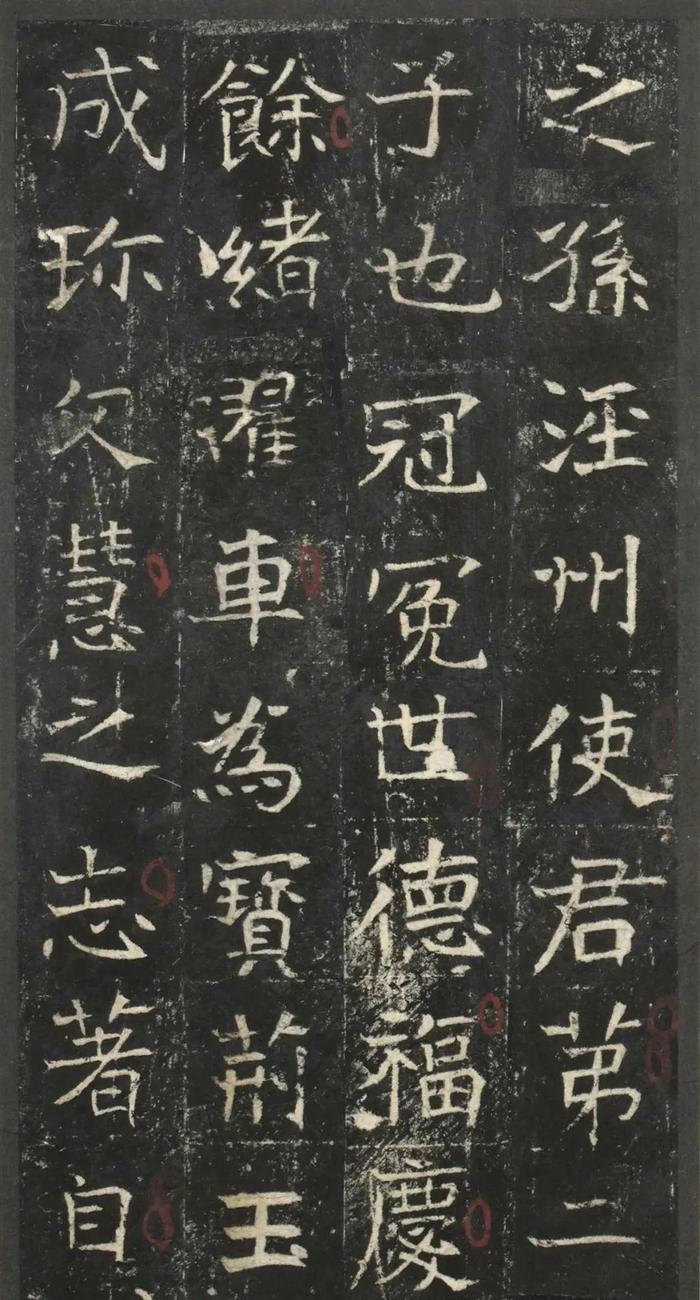 之孫涇州使君苐二
子也冠冕世德福慶
餘緒濯車為寶荊玉
成珎文慧之志著自